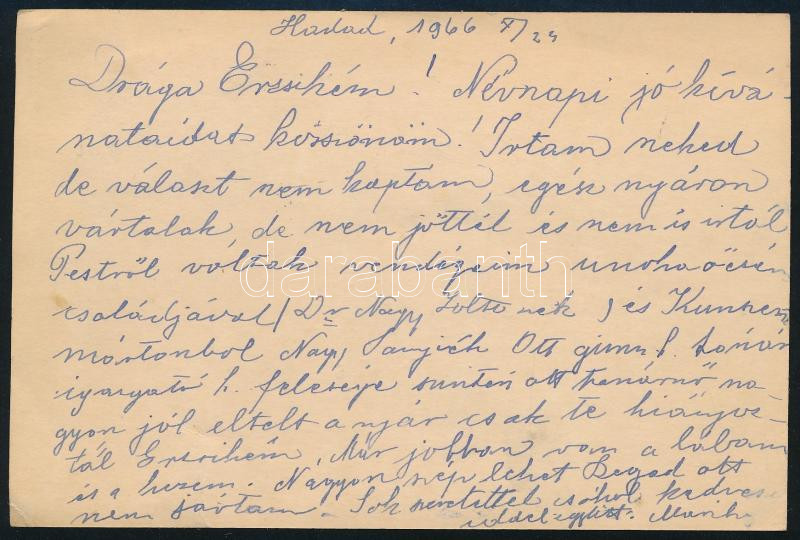 Hadad, 1966 X/24
Drága Erzsikém! Névnapi jó kívá-
nataidat köszönöm! Irtam neked
de választ nem kaptam, egész nyáron
vártalak, de nem jöttél és nem is irtál
Pestről voltak vendégeim unokaöcsém
családjával (Dr Nagy ) és Kunszent
mártonból Nagy Sanyiék Ott gimn. tanár
igazgató h. felesége szintén ott tanárnő na-
gyon jól eltelt a nyár csak te hiányoz-
tál Erzsikém, Már jobban van a lábam
is a kezem. Nagyon szép lehet Szeged ott
nem jártam. Sok szeretettel csókol kedves
iddel együtt.
darabanth